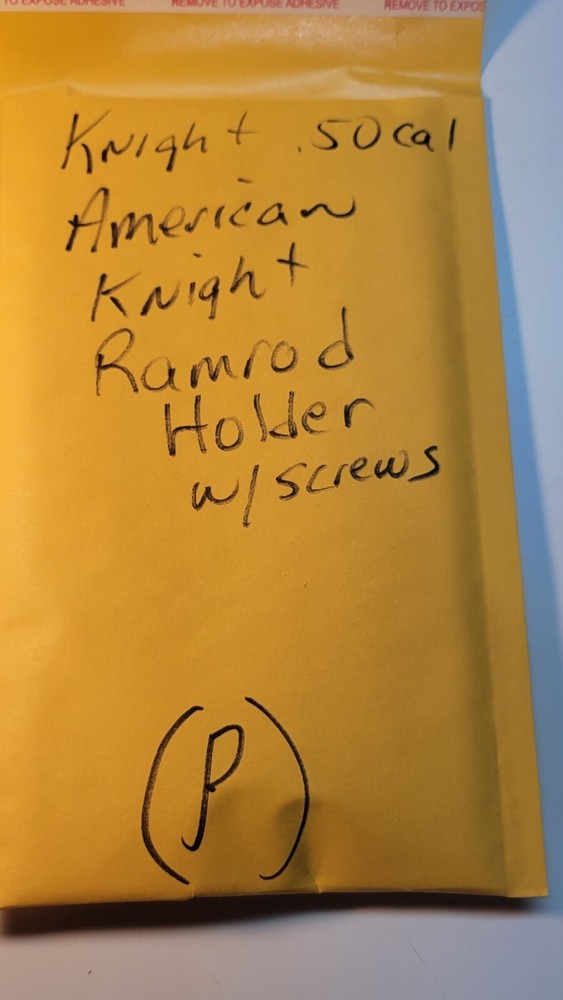 TO EXPOSE ADHESIVE REMOVE TO EXPOSE ADHESIVE REMOVE TO EXPOS
Knight .50 cal
American
Knight
Ramrod
Holder
w/ screws
(P)